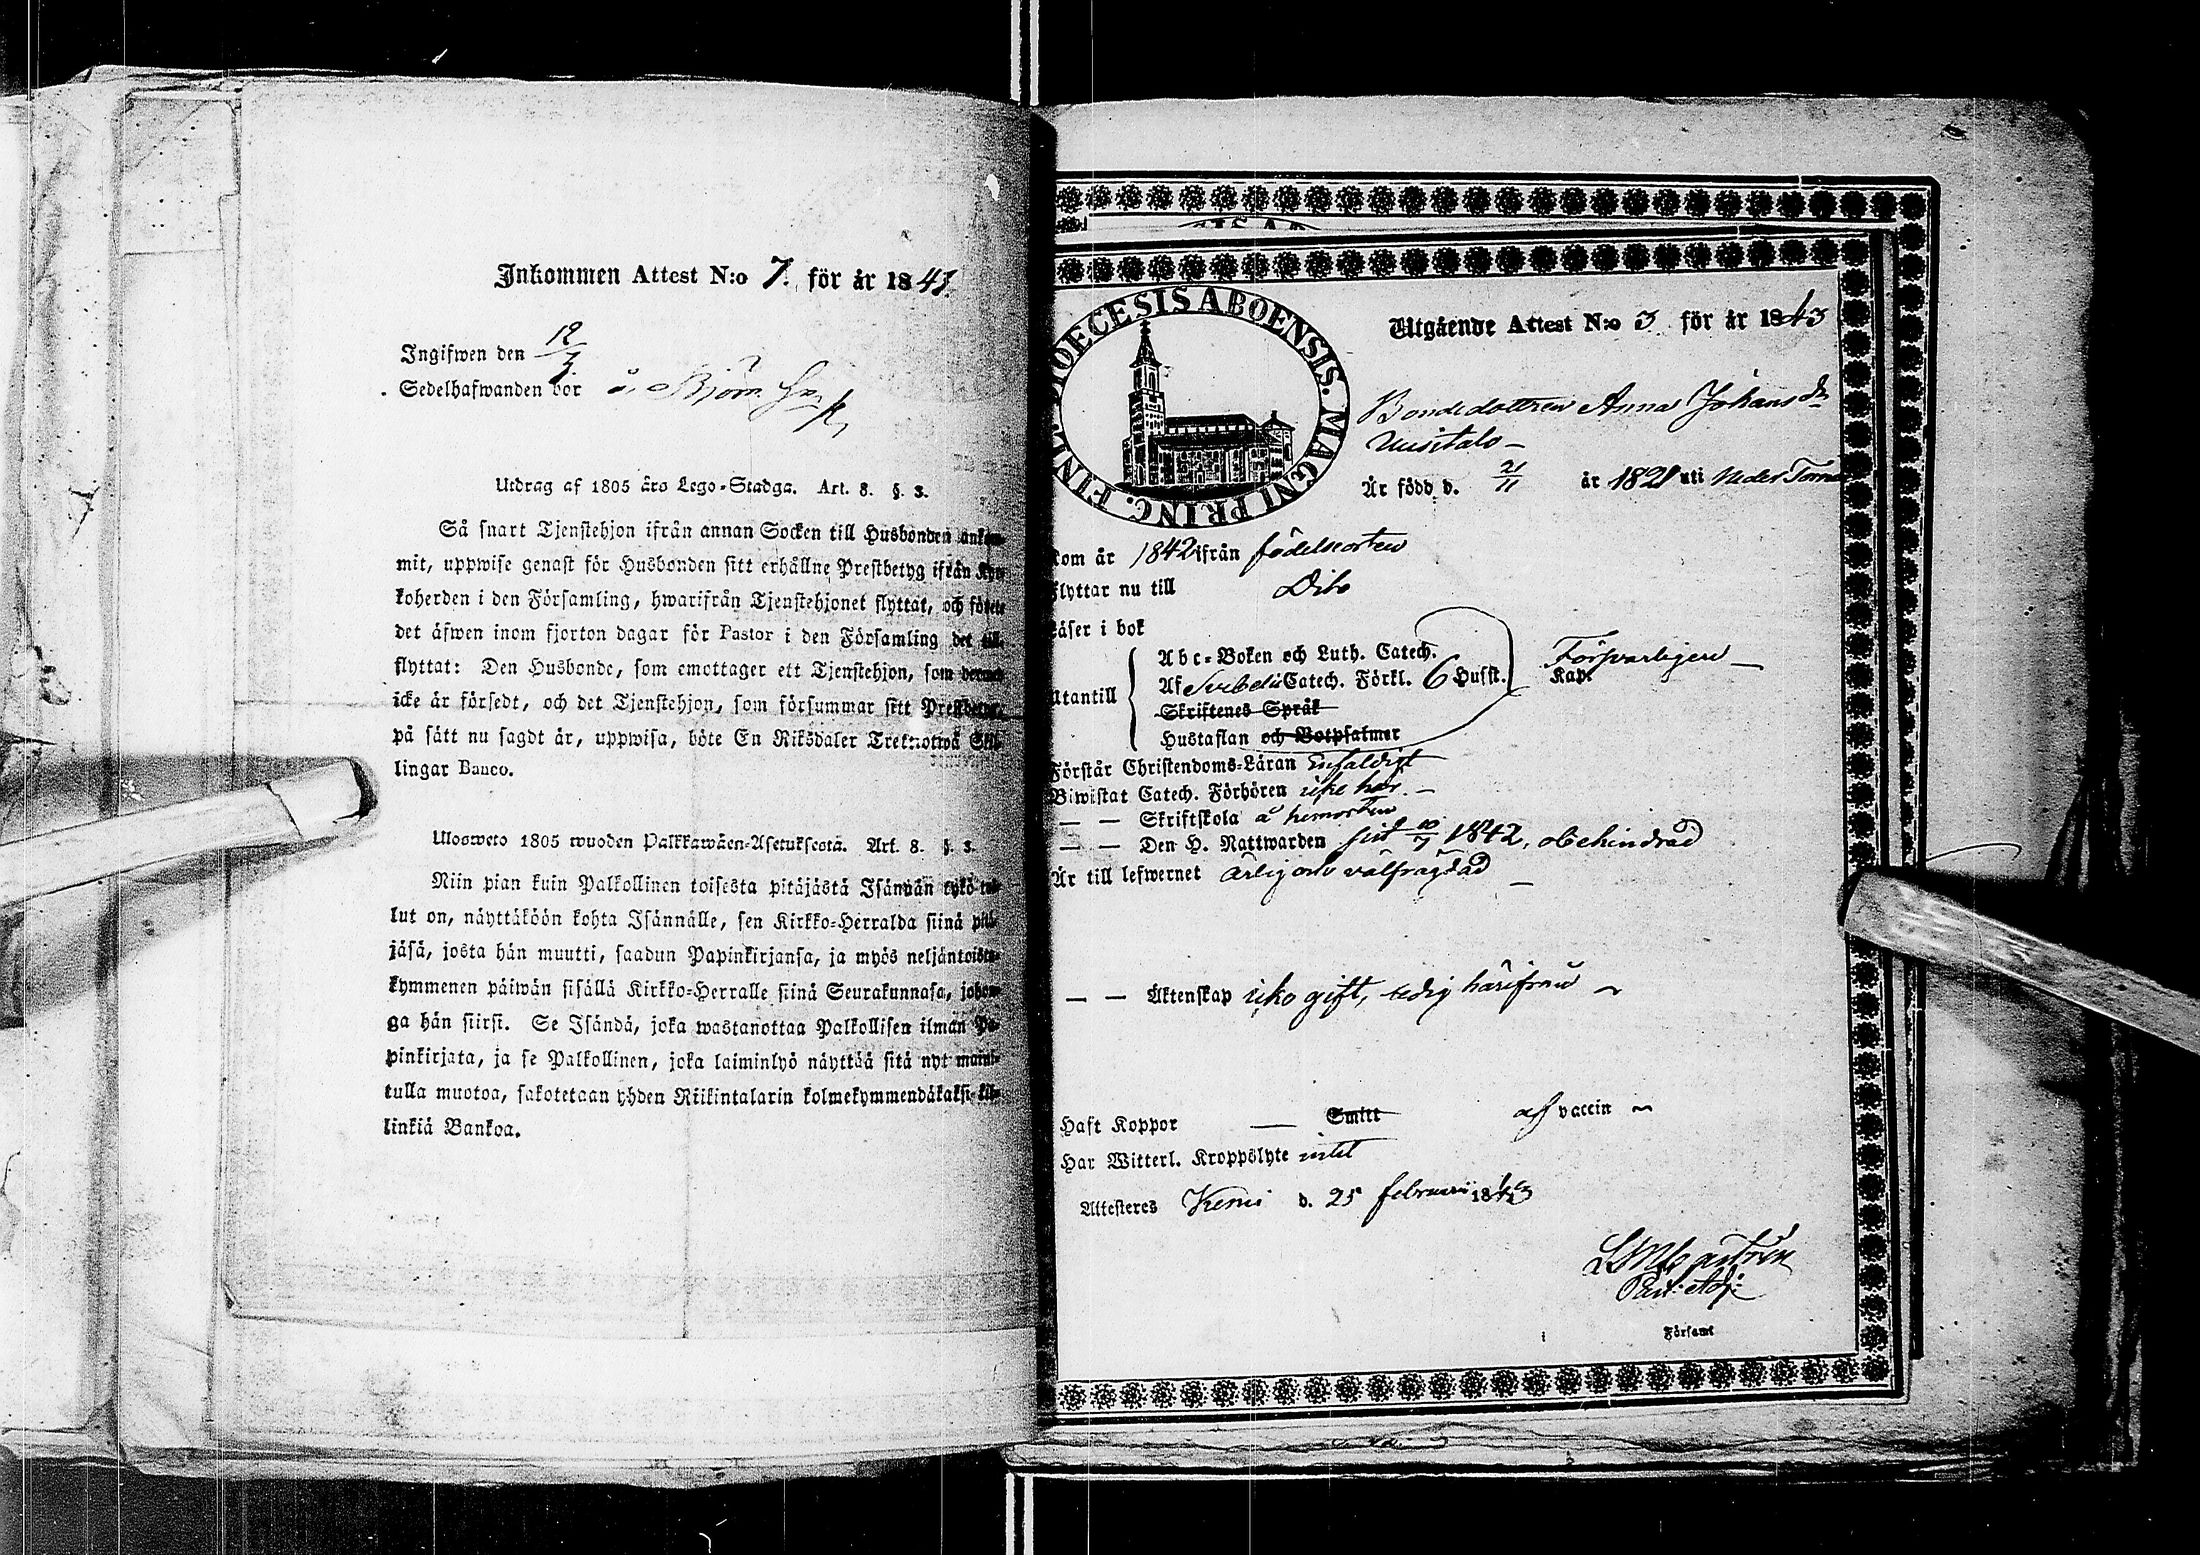 Inkommen Attest N:o 7. för år 1843.
Ingifwen den 12/7.
Sedelhafwanden bor å Björn
Utdrag af 1805 års Lego-Stadga. Art. 8. §. 3.
Så snart Tjenstehjon ifrån annan Socken till Husbonden ankom-
mit, uppwise genast för Husbonden sitt erhållne Prestbetyg ifrån Kyr-
koherden i den Församling, hwarifrån Tjenstehjonet flyttat, och förete
det äfwen inom fjorton dagar för Pastor i den Församling det till-
flyttat: Den Husbonde, som emottager ett Tjenstehjon, som dermed
icke är försedt, och det Tjenstehjon, som försummar sitt Prestbetyg,
på sätt nu sagdt är, uppwisa, böte En Riksdaler Trettiotwå Skil-
lingar Banco.
Ulosweto 1805 wuoden Palkkawäen-Asetuksesta. Art. 8. §. 3.
Niin pian kuin Palkollinen toisesta pitäjästä Isännän tykö tul-
lut on, näyttäköön kohta Isännälle, sen Kirkko-Herralda siinä pitä-
jäsä, josta hän muutti, saadun Papinkirjansa, ja myös neljäntoista-
kymmenen päiwän sisällä Kirkko-Herralle siinä Seurakunnasa, johon-
ga hän siirsi. Se Isändä, joka wastanottaa Palkollisen ilman Pa-
pinkirjata, ja se Palkollinen, joka laiminlyö näyttää sitä nyt maini-
tulla muotoa, sakotetaan yhden Riikintalarin kolmekymmendäkaksi kil-
linkiä Bankoa.
DIOECESIS ABOENSIS. MAGNI PRINC. FINL.
Utgående Attest N:o 3 för år 1843
Bondedottren Anna Johansdr
Uusitalo
Är född d. 21/11 år 1821 uti Neder Torneå
Kom år 1842 ifrån födelseorten
Flyttar nu till Dito
Läser i bok
Utantill
Abc-Boken och Luth. Catech.
Af Svebelii Catech. Förkl. 6 Husst. Kap. Försvarligen
Skriftenes Språk
Hustaflan och Botpsalmer
Förstår Christendoms-Läran Enfaldigt
Biwistat Catech. Förhören icke här.
— — Skriftskola å hemorten
— — Den H. Nattwarden sist 10/7 1842, obehindrad
Är till lefwernet ärlig och välfrägdad
— — Äktenskap icke gift, ledig härifrån
Haft Koppor — Smitt af vaccin
Har Witterl. Kroppslyte intet
Attesteres Kemi d. 25 februarii 1843
Castrén
Past: Adj:
Församl